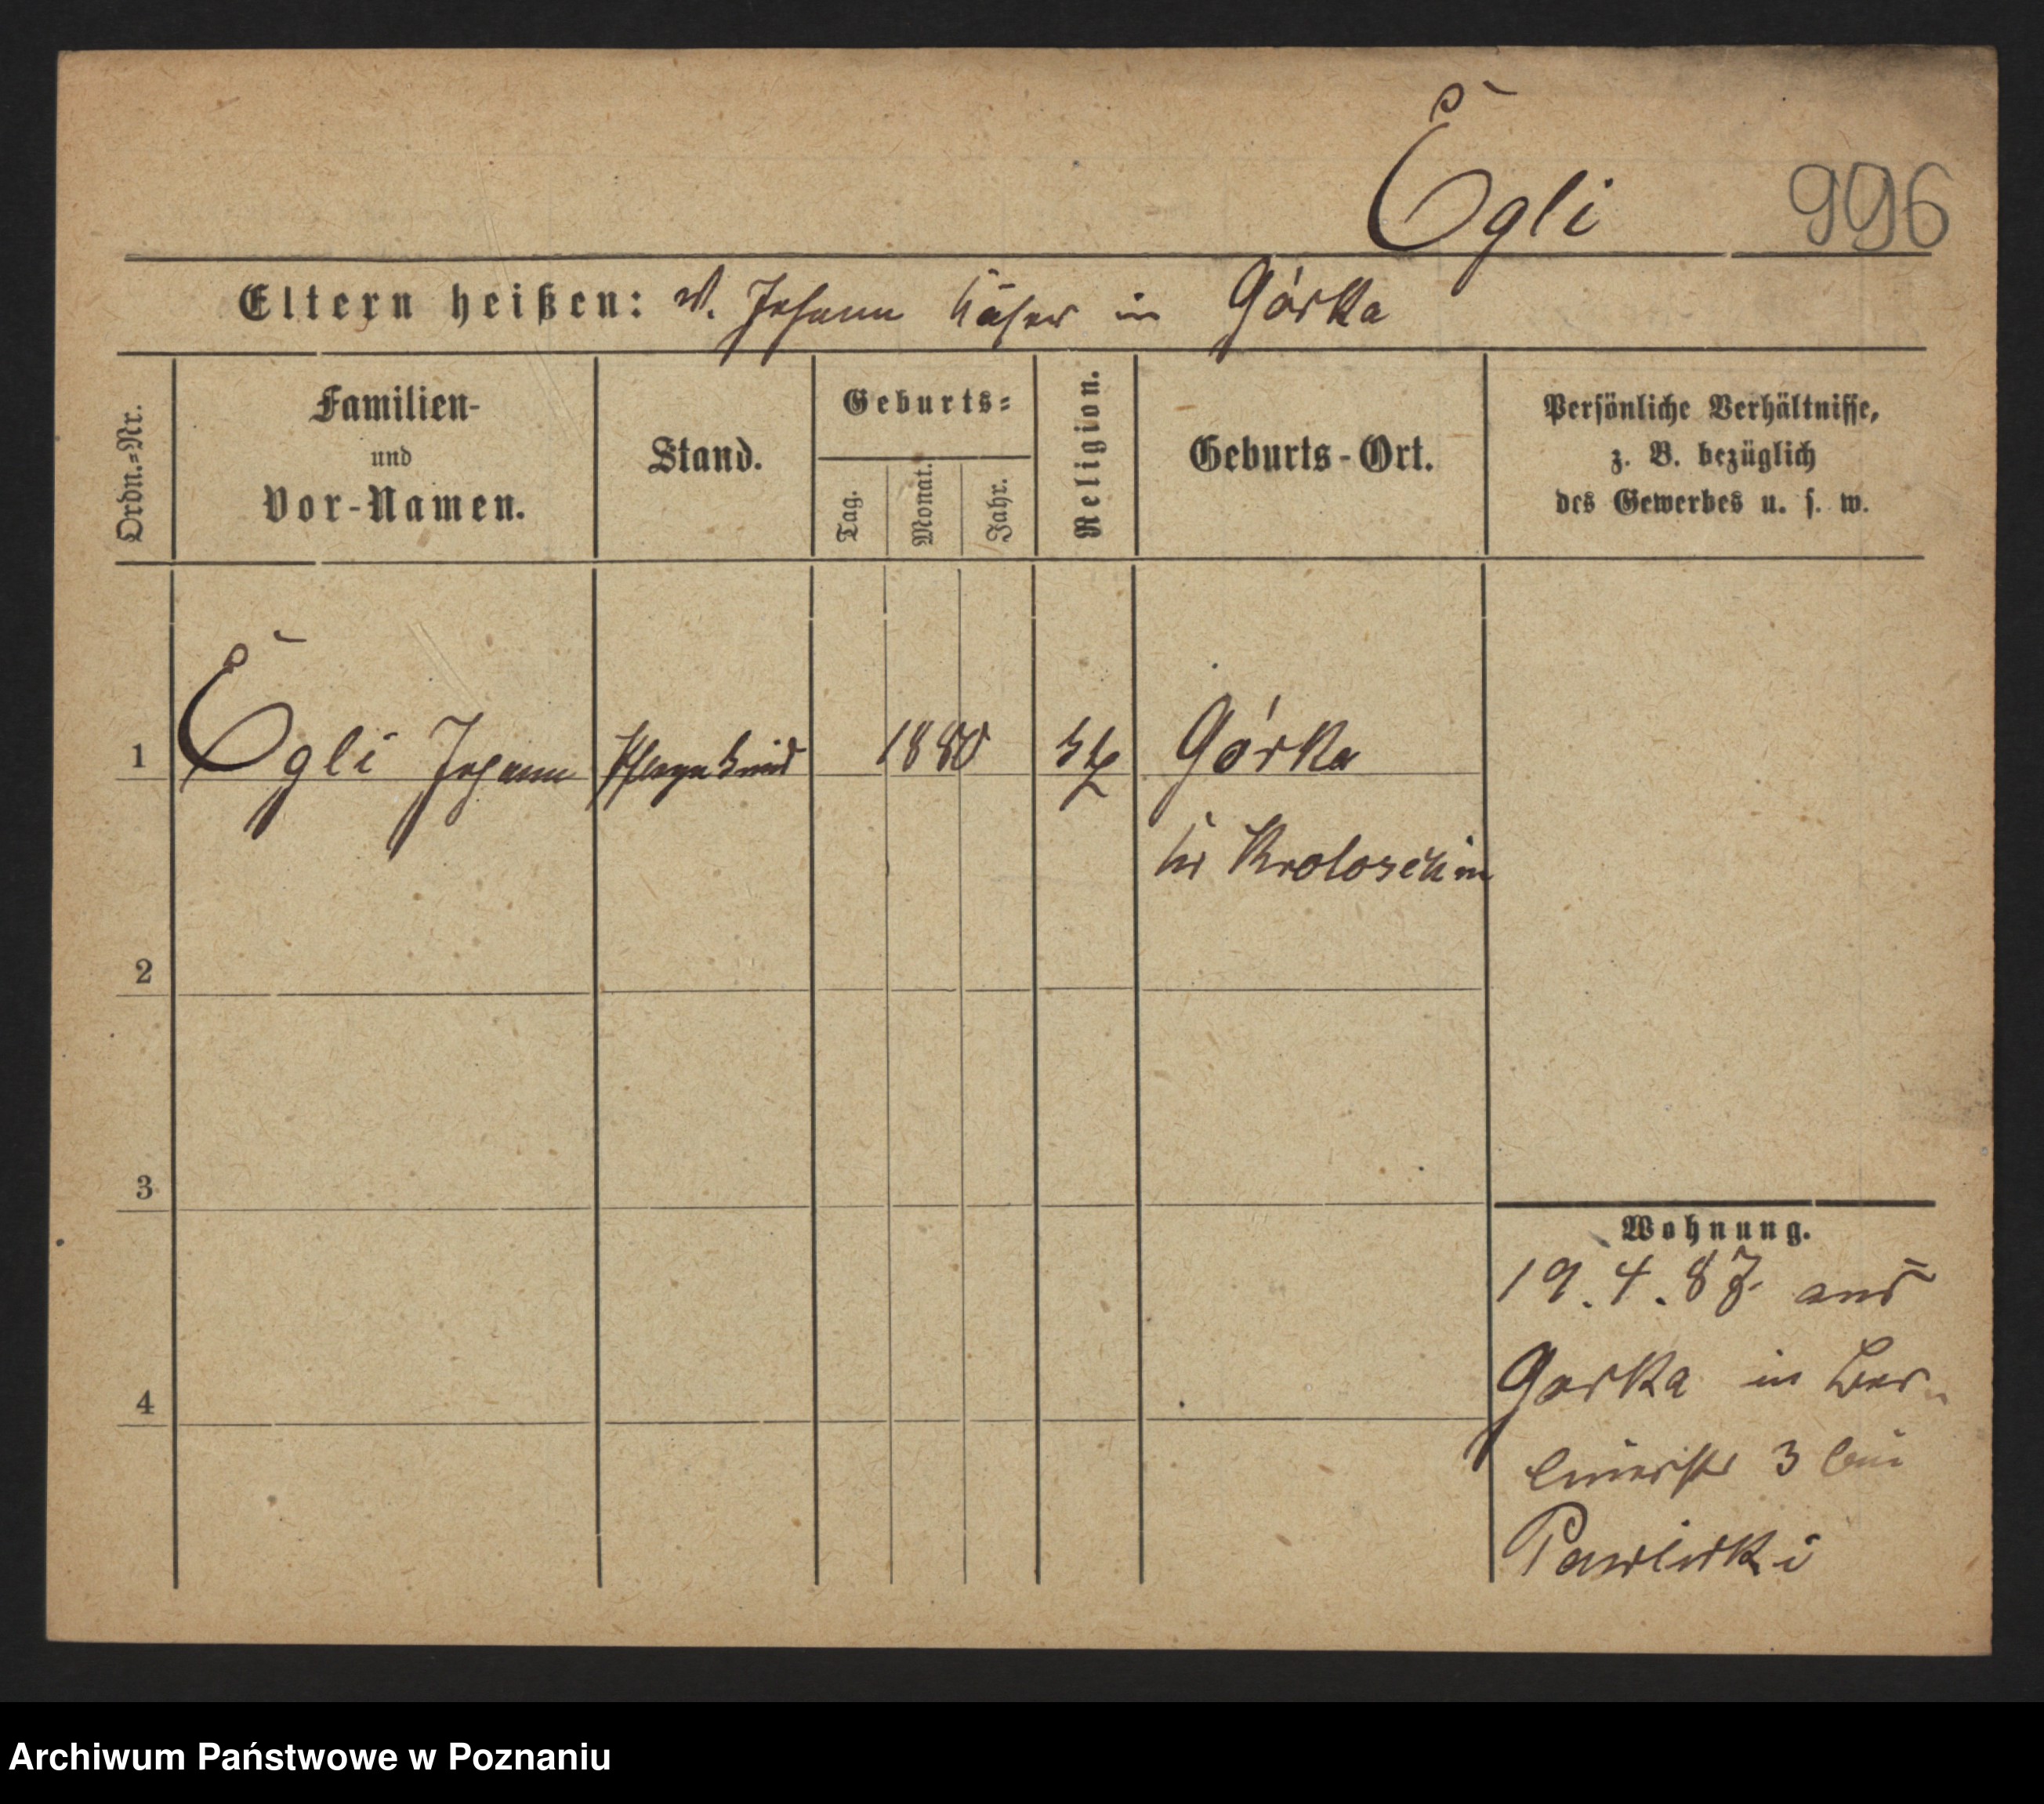 Egli 996
Eltern heißen: V. Johann Häusler in Górka
Ordn.=Nr.
Familien-
und
Vor-Namen.
Stand.
Geburts=
Tag.
Monat.
Jahr.
Religion.
Geburts-Ort.
Persönliche Verhältnisse,
z. B. bezüglich
des Gewerbes u. s. w.
1 Egli Johann Pflegekind 1880 kth Górka
Kr Krotoschin
2
3
4
Wohnung.
19.4.87 aus
Gorka in Ber-
linerstr 3 bei
Pawlicki
Archiwum Państwowe w Poznaniu